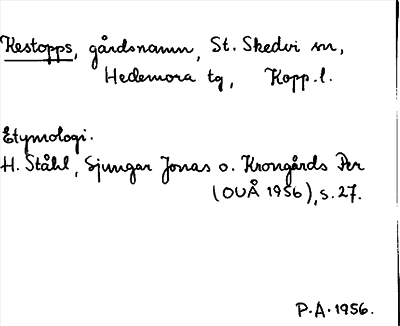 Kestopps, gårdsnamn, St. Skedvi sn,
Hedemora tg, Kopp. l.
Etymologi.
H. Ståhl, Sjungar Jonas o. Krongårds Per
(OUÅ 1956), s. 27.
P.A. 1956.